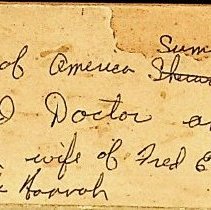 Sum
of America
Doctor
wife of Fred E
Hannah